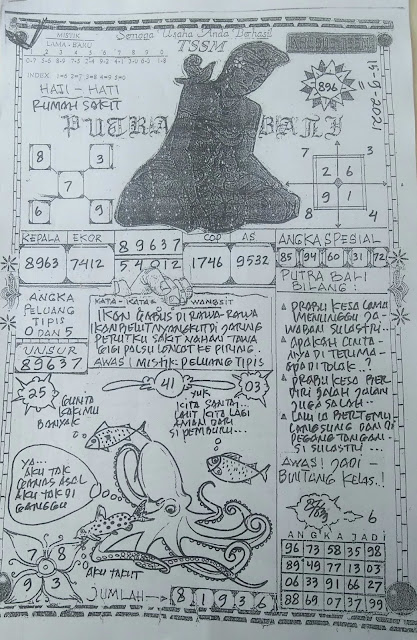 Semoga Usaha Anda Berhasil
TSSM
MISTIK
LAMA - BARU
1 2 3 4 5 6 7 8 9 0
INDEX
HATI - HATI
RUMAH SAKIT
PUTRA BALI
896
15-9-2021
8 3
7
6 9
7 3
2 6
9 1
8 4
KEPALA EKOR
8963 7412
89637
54012
COP AS
1746 9532
ANGKA SPESIAL
85 94 60 31 72
ANGKA
PELUANG
TIPIS
0 DAN 5
UNSUR
89637
KATA - KATA WANGSIT
IKAN GABUS DI RAWA-RAWA
IKAN BELUT NYANGKUT DI JARING
PERUTKU SAKIT NAHAN TAWA
GIGI PALSU LONCAT KE PIRING.
AWAS! MISTIK PELUANG TIPIS
PUTRA BALI
BILANG:
PRABU KESA LAMA
MENUNGGU JA-
WABAN SULASTRI..
APAKAH CINTA-
NYA DI TERIMA-
APA DI TOLAK..?
PRABU KESA BER
DIRI SALAH JALAN
JUGA SALAH..
LALU IA BERTEMU
LANGSUNG DAN DI
PEGANG TANGAN-
SI SULASTRI...
AWAS! JADI -
BINTANG KELAS.!
6
25
GUNTA
KAKIMU
BANYAK
41
03
YUK
KITA SANTAI
LAH KITA LAGI
AMAN DARI
SI PEMBURU...
YA...
AKU TAK
CEMAS ASAL
AKU TAK DI
GANGGU
AKU TAKUT
7 8
9 3
JUMLAH 8 1 9 3 6
ANGKA JADI
96 73 58 35 98
89 49 77 13 03
06 33 91 66 27
88 69 07 37 99